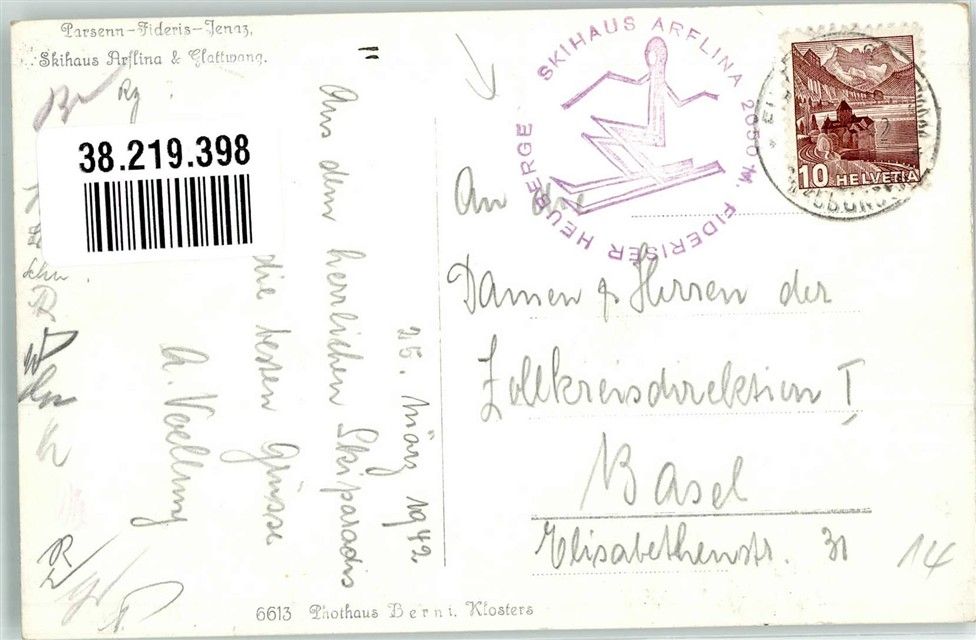 Parsenn-Fideris-Jenaz,
Skihaus Arflina & Glattwang.
38.219.398
25. März 1942.
Aus dem herrlichen Skiparadis
die besten Grüsse
SKIHAUS ARFLINA 2050 M. FIDERISER HEUBERGE
10 HELVETIA
An die
Damen & Herren der
Zollkreisdirektion I
Basel
Elisabethenstr. 31
14
6613 Phothaus Berni. Klosters